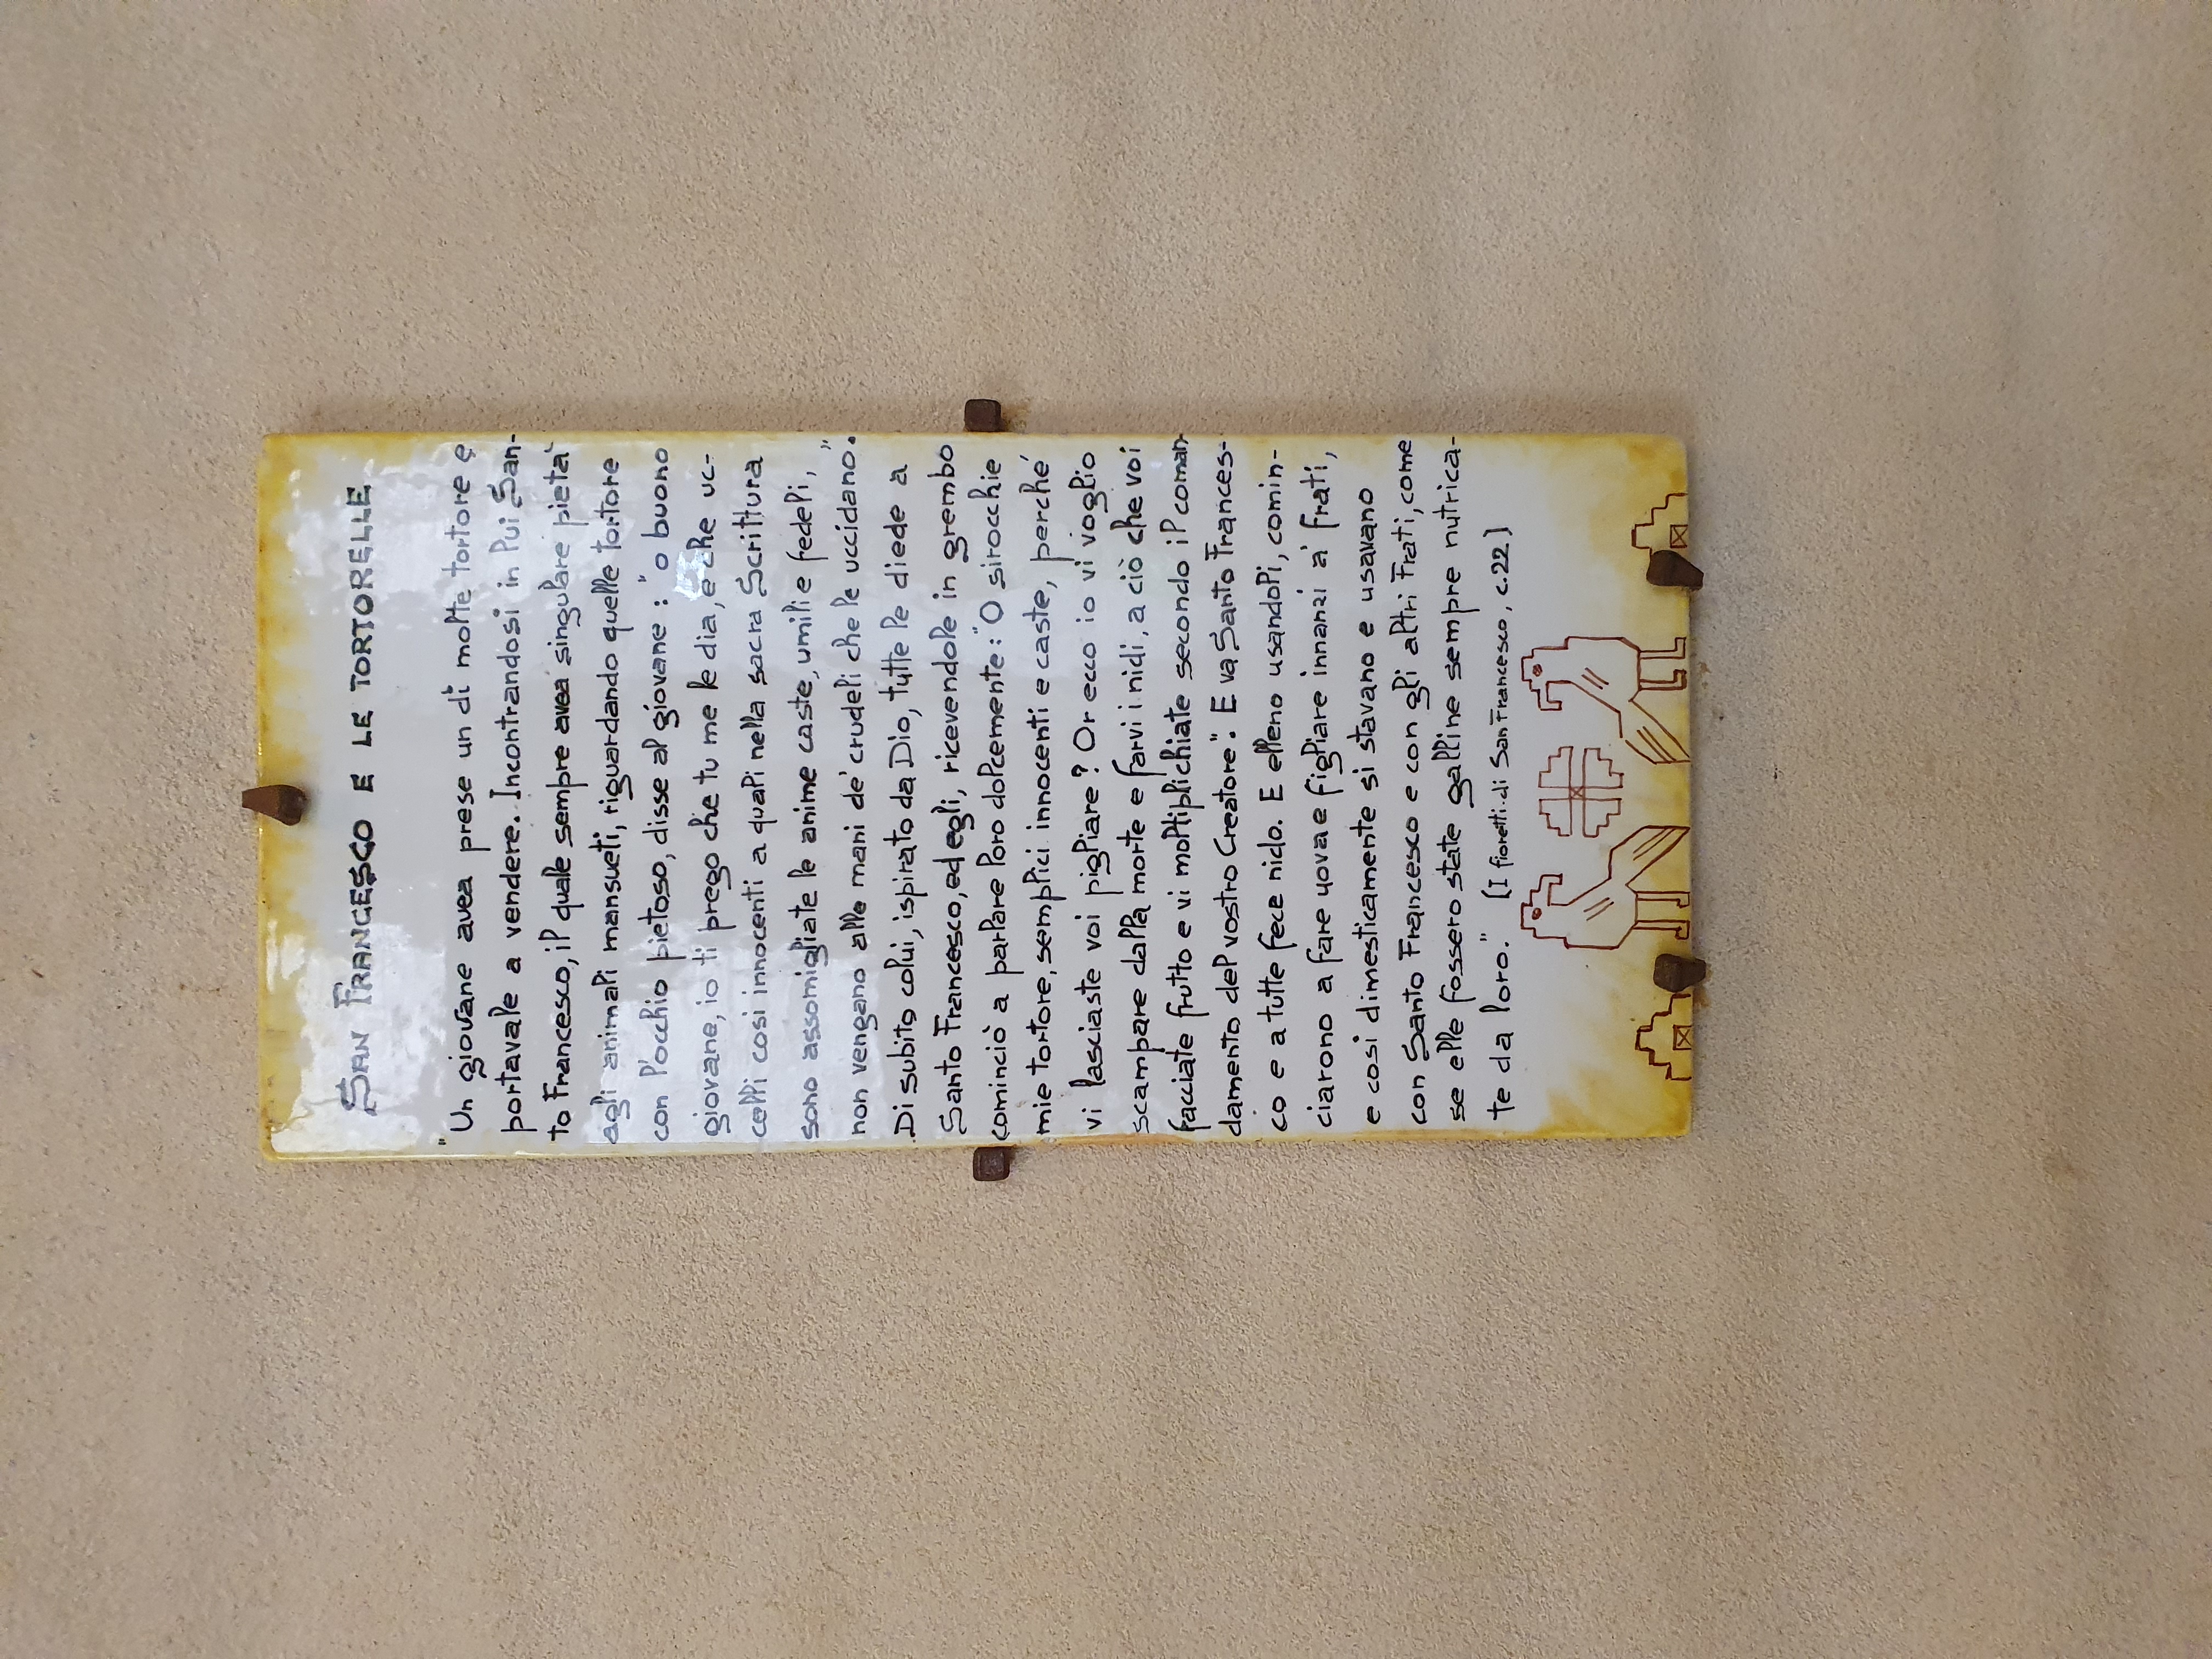 SAN FRANCESCO E LE TORTORELLE
"Un giovane avea prese un dì molte tortore e
portavale a vendere. Incontrandosi in lui San-
to Francesco, il quale sempre avea singulare pietà
agli animali mansueti, riguardando quelle tortore
con l'occhio pietoso, disse al giovane: "o buono
giovane, io ti prego che tu me le dia, e che uc-
celli così innocenti a quali nella sacra Scrittura
sono assomigliate le anime caste, umili e fedeli,
non vengano alle mani de' crudeli che le uccidano".
Di subito colui, ispirato da Dio, tutte le diede a
Santo Francesco, ed egli, ricevendole in grembo
cominciò a parlare loro dolcemente: "O sirocchie
mie tortore, semplici innocenti e caste, perché
vi lasciaste voi pigliare? Or ecco io vi voglio
scampare dalla morte e farvi i nidi, a ciò che voi
facciate frutto e vi moltiplichiate secondo il coman-
damento del vostro Creatore". E va Santo Frances-
co e a tutte fece nido. E elleno usandoli, comin-
ciarono a fare uova e figliare innanzi a' frati,
e così dimesticamente si stavano e usavano
con Santo Francesco e con gli altri Frati, come
se elle fossero state galline sempre nutrica-
te da loro." (I fioretti di San Francesco, c.22)